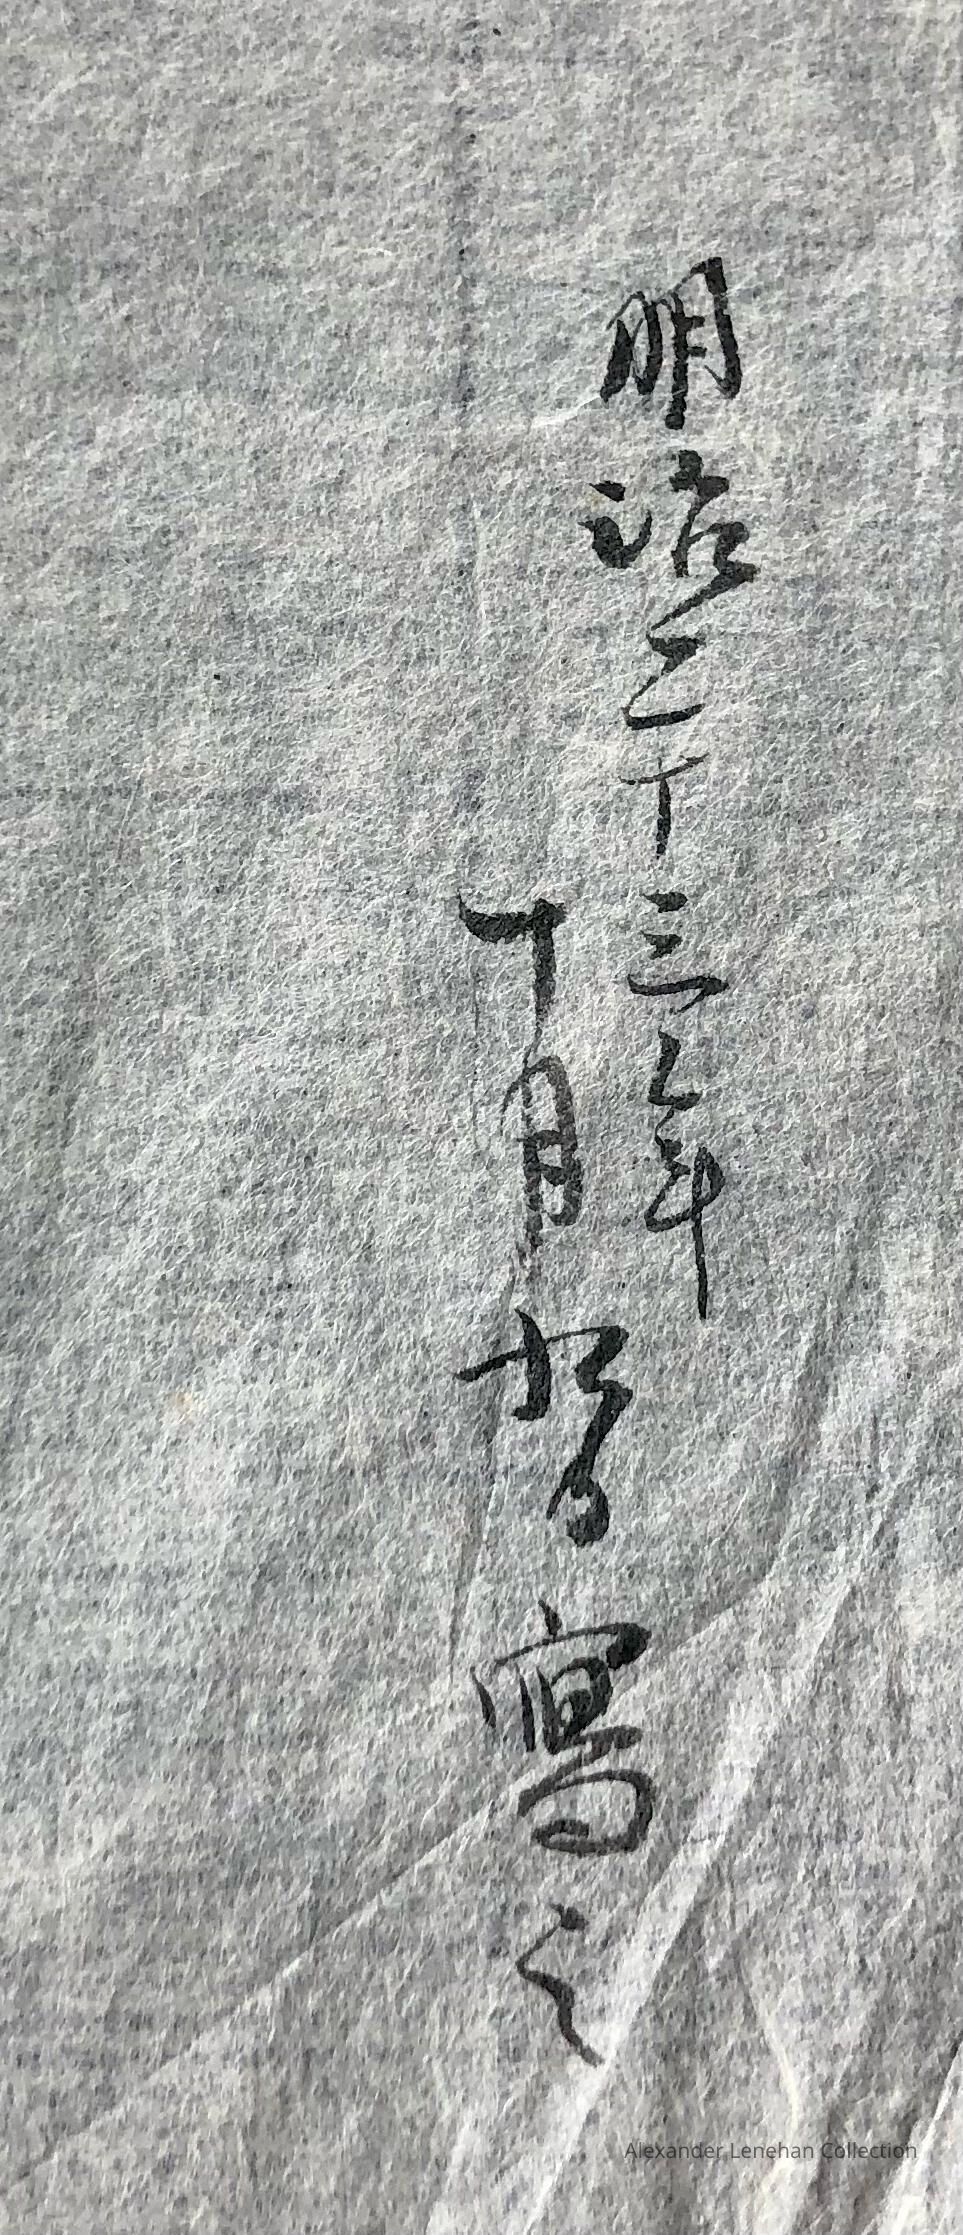 明治二十三年
十月 日 寫之
Alexander Lenehan Collection